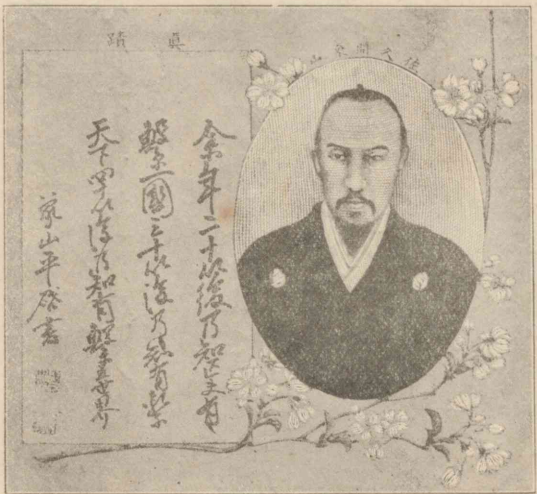 佐久間象山
眞蹟
余年二十以後乃知匹夫有
繫一國三十以後乃知有繫
天下四十以後乃知有繫五世界
象山平啓書